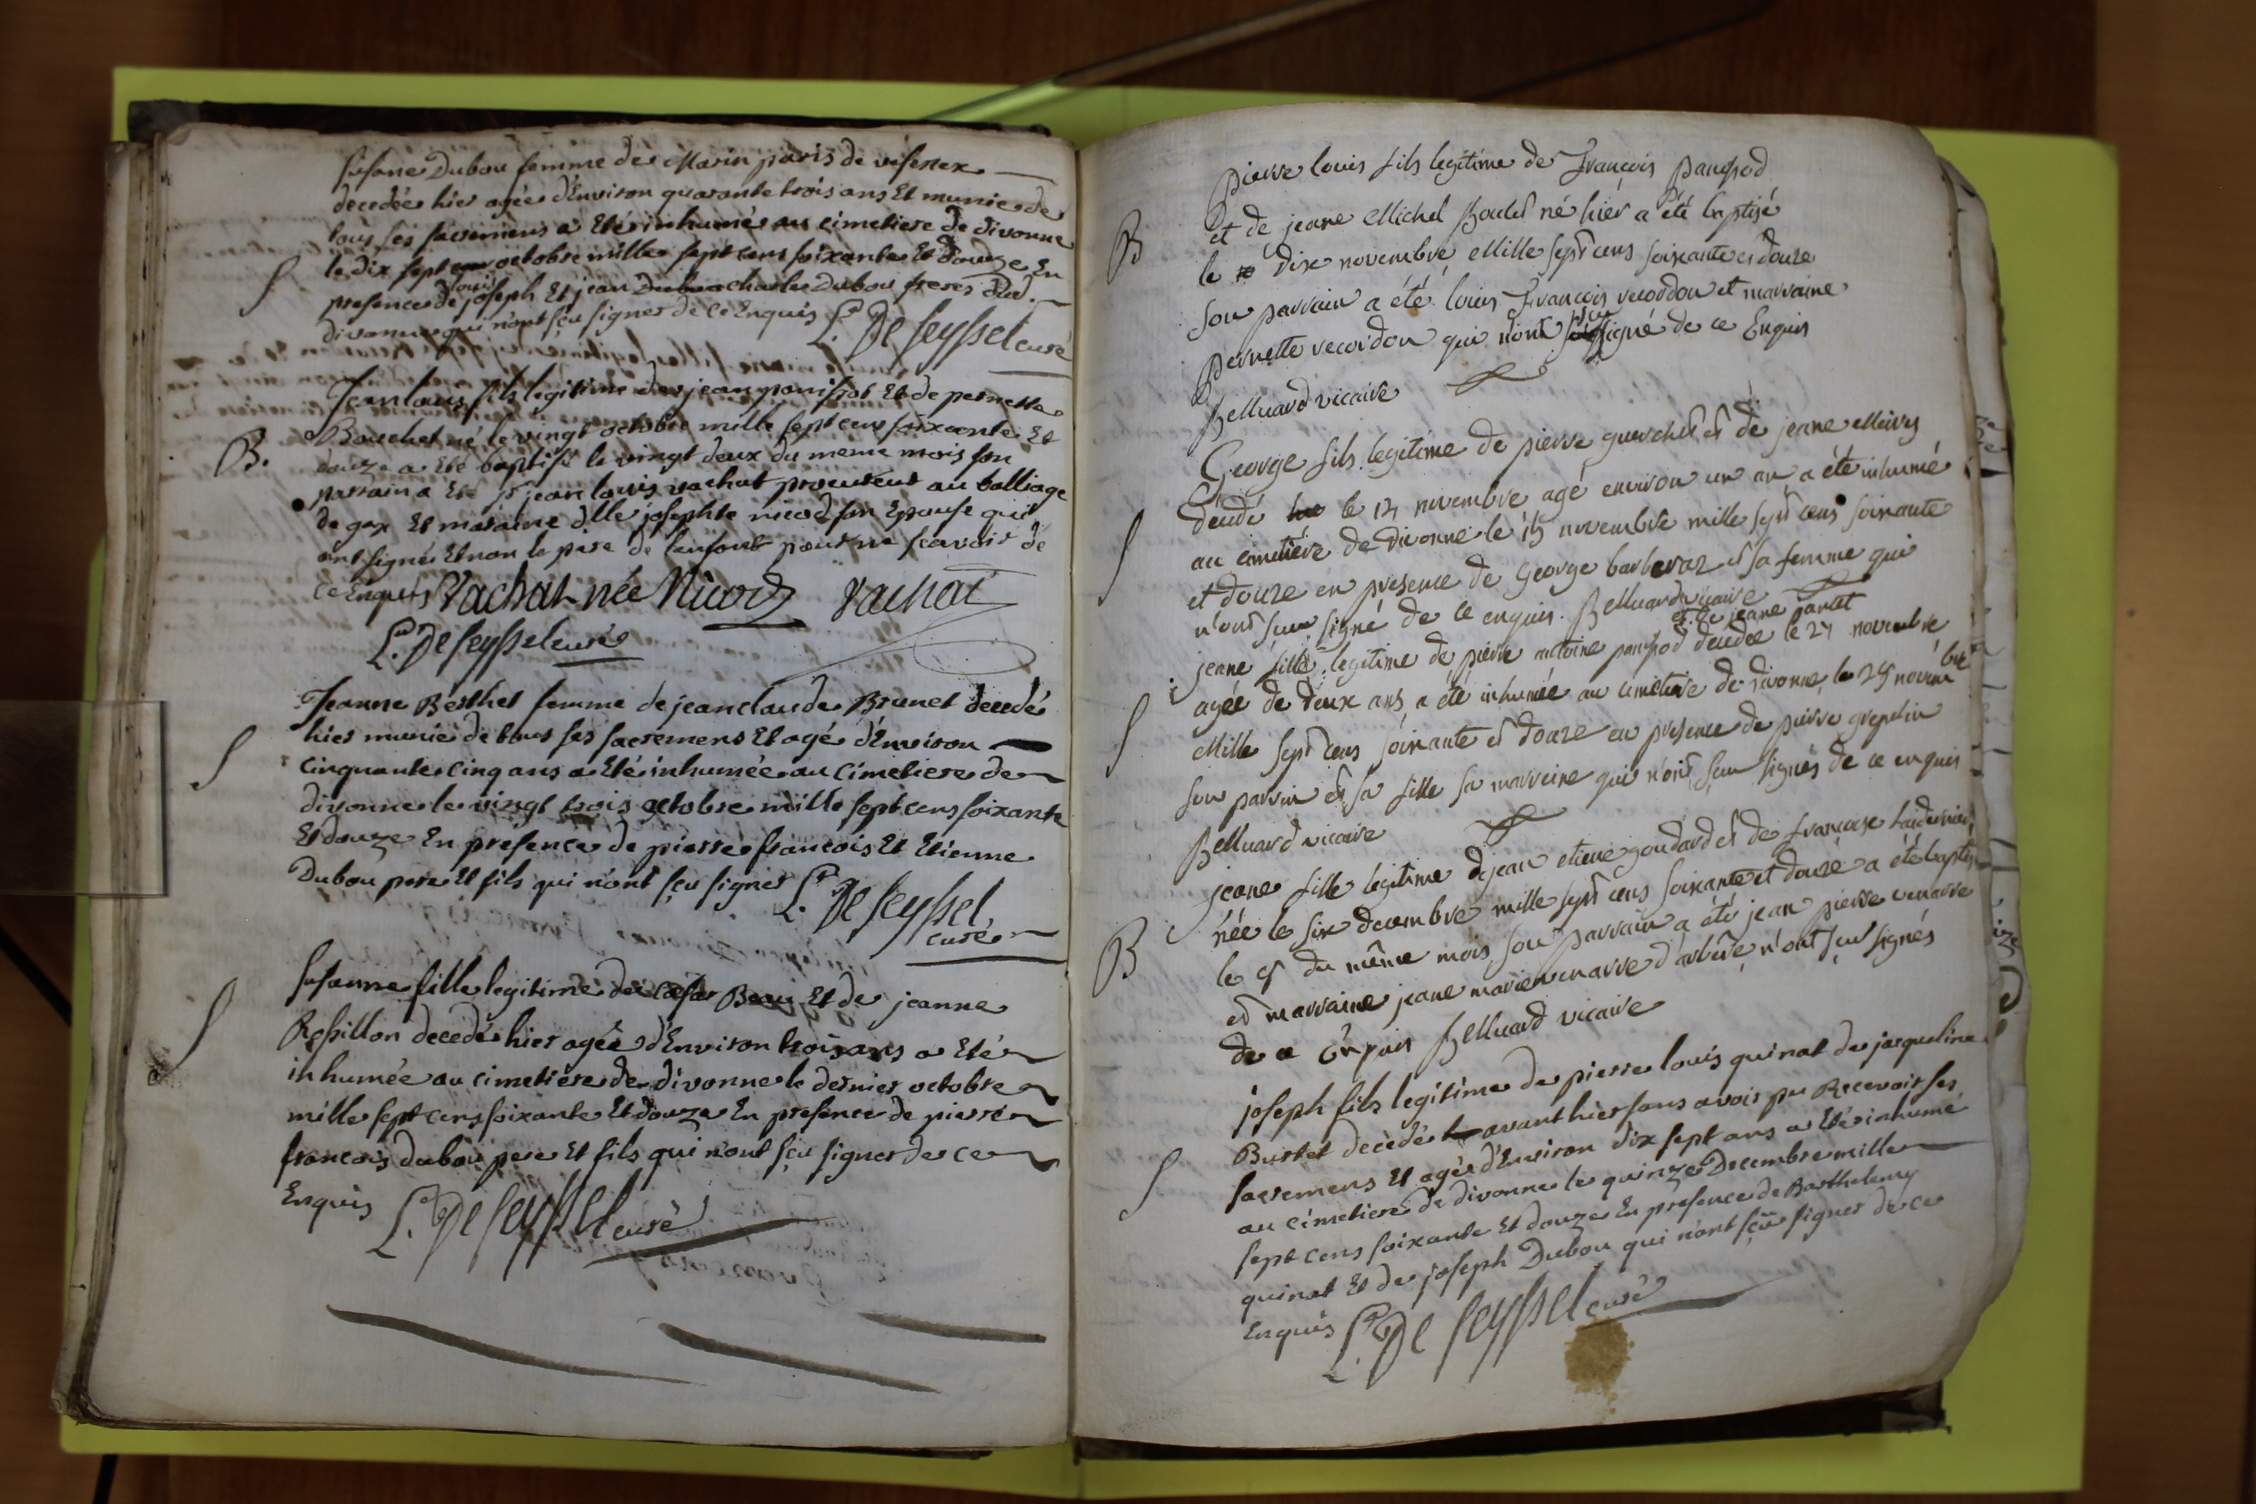 Susane Dubou femme de Marin paris de vesenex
decedée hier agée d'Environ quarante trois ans Et munie de
tous ses sacremens a Eté inhumée au cimetiere de divonne
S
le dix sept octobre mille sept cens soixante Et douze En
presence de joseph Et jean charles Dubou freres dud.
divonne qui n'ont sçu signer de ce Enquis L. De Seyssel curé
Jean louis fils legitime de jean panissod Et de pernette
Bouchet né le vingt octobre mille sept cens soixante Et
B.
douze a Eté baptisé le vingt deux du meme mois son
parrain a Eté sr jean louis vachat procureur au balliage
de gex Et maraine dlle josephte nicod son Epouse qui
ont signé Et non le pere de l'enfant pour ne sçavoir de
ce Enquis Vachat née Nicod Vachat
L. De Seyssel curé
Jeanne Berthet femme de jean claude Brunet decedé
hier munie de tous ses sacremens Et agé d'Environ
S
cinquante cinq ans a Eté inhumée au cimetiere de
divonne le vingt trois octobre mille sept cens soixante
Et douze En présence de pierre francois Et Etienne
Dubou pere Et fils qui n'ont sçu signer L. De Seyssel
curé
Susanne fille legitime de Cæsar Beau Et de jeanne
S
Rossillon decedé hier agée d'Environ trois ans a Eté
inhumée au cimetiere de divonne le dernier octobre
mille sept cens soixante Et douze En presence de pierre
francois dubou pere Et fils qui n'ont sçu signer de ce
Enquis L. De Seyssel curé
Pierre louis fils legitime de François panissod
B
et de jeane Michel Boulet né hier a été baptisé
le dix novembre Mille sept cens soixante et douze
son parrain a été louis François recordon et marraine
Pernette recordon qui n'ont sçu signé de ce Enquis
Belluard vicaire
George fils legitime de pierre guerchet et de jeane
décédé le 14 novembre agé environ un an a été inhumé
S
au cimetière de Divonne le 15 novembre mille sept cens soixante
et douze en presence de George barberaz et sa femme qui
n'ont sceu signé de ce enquis. Belluard vicaire
et de jeane pantet
jeane fille legitime de pierre antoine panissod decedée le 24 novembre
S
agée de deux ans a été inhumée au cimetiere de divonne le 25 novembre
Mille sept cens soixante et douze en presence de pierre grepelin
son parrin et sa fille sa marreine qui n'ont sceu signés de ce enquis
Belluard vicaire
jeane fille legitime de jean etiene goudard et de françoise
née le six decembre mille sept cens soixante et douze a été baptisée
B
le 9 du même mois, son parrain a été jean pierre venarre
et marraine jeane marie venarre d'arbère n'ont sceu signés
de ce Enquis Belluard vicaire
joseph fils legitime de pierre louis quinat de jacqueline
Burtet decédé avant hier sans avoir pu Recevoir ses
S
sacremens Et agée d'Environ dix sept ans a Eté inhumé
au cimetiere de divonne le quinze Decembre mille
sept cens soixante Et douze En presence de Barthelemy
quinat Et de joseph Dubou qui n'ont sçu signer de ce
Enquis L. De Seyssel curé